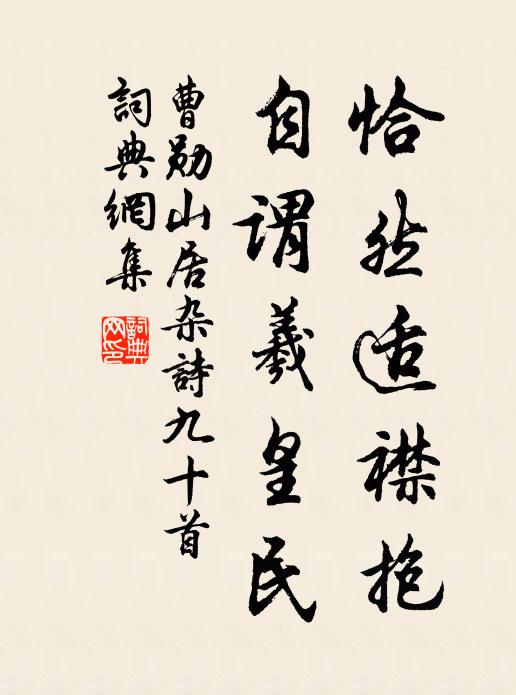 恰然适襟抱
自谓羲皇民
曹勋山居杂詩九十首
詞典網集
詞典網印